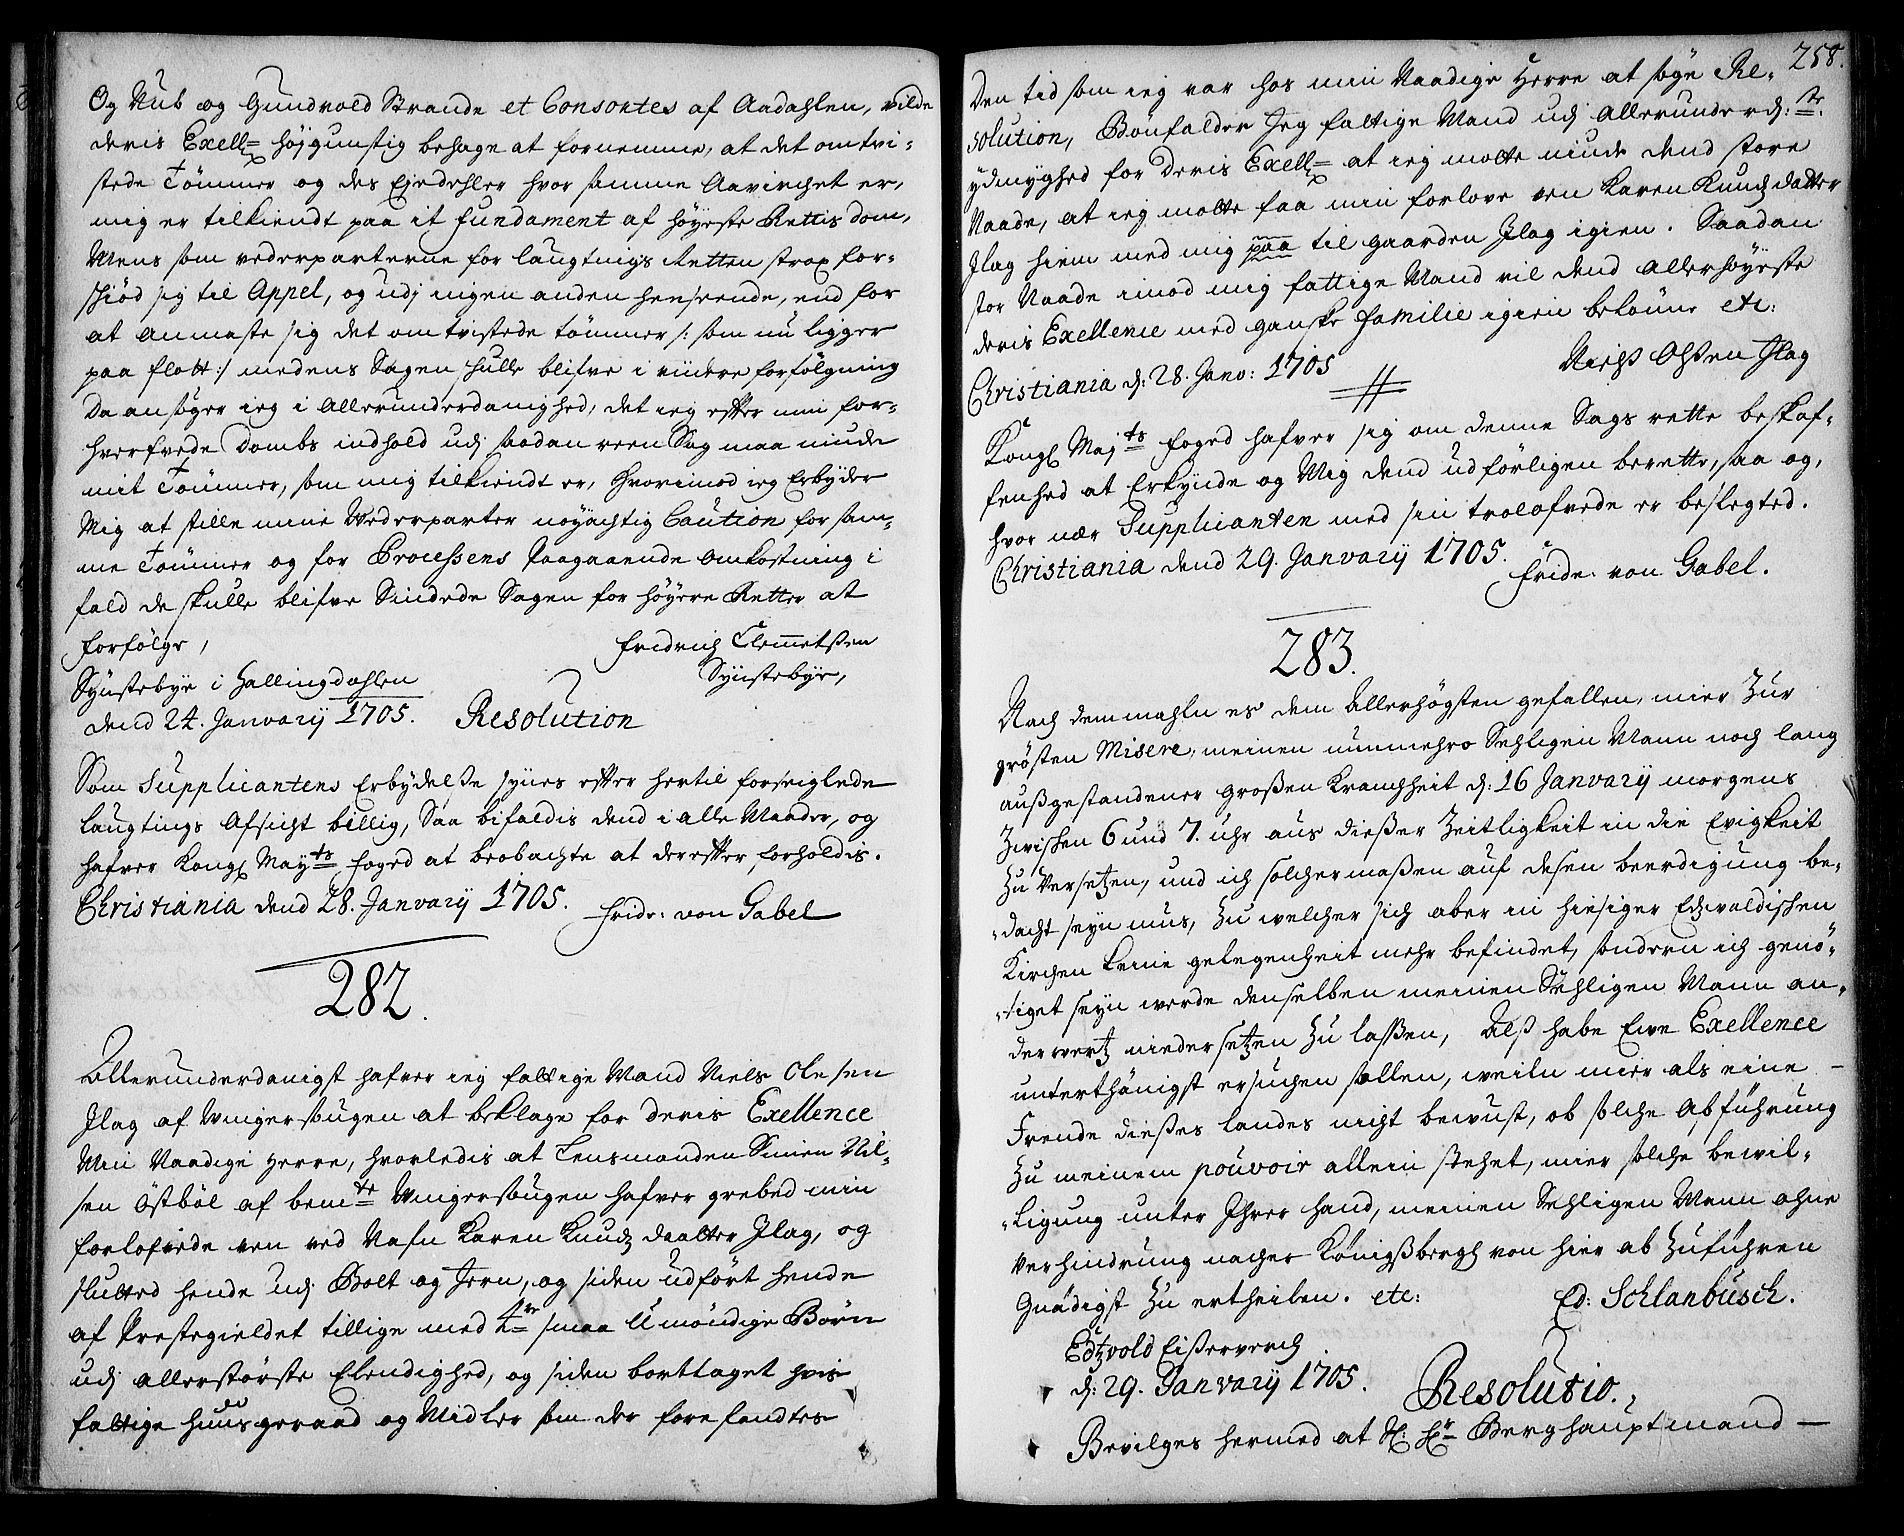 Og Nub og Gundvold Strande et Consortes af Aadahlen, vilde
deris Exell= højgunstig behage at fornemme, at det omtvi-
stede Tömmer og des Ejedehler hvor samme Aavirchet er,
mig er tilkiendt paa it fundament af höyeste Rettis dom,
Mens som vederparterne for laugtings Retten strax for-
schiød sig til Appel, og udj ingen anden henseende, end for
at anmaste sig det omtvistede tömmer /: som nu ligger
paa flott :/ medens Sagen skulle blifve i videre forfölgning
Da ansöger ieg i Allerunderdanighed, det ieg efter min for-
hverfvede Dombs indhold udj saadan reen Sag maa niude
mit Tömmer, som mig tilkiendt er, hvorimod ieg Erbyder
Mig at stille mine Vederparter nöyachtig Caution for sam-
me Tömmer og for Processens Paagaaende Omkostning i
fald de skulle blifve Sindede Sagen for höyere Retter at
forfölge,
Fridrich Clemetsen
Synstebye,
Synstebye i Hallingdahlen
dend 24. Janvarij 1705.
Resolution
Som Supplicantens Erbydelse synes efter hertil forseiglede
laugtings Afsicht billig, Saa bifaldis dend i alle Maader, og
hafver Kongl May.ts foged at beobachte at derefter forholdis.
Christiania dend 28. Janvarij 1705.
Fride: von Gabel
282.
Allerunderdanigst hafver ieg fattige Mand Niels Olesen
Ilag af Vingersougen at beklage for deris Exellence
Min Naadige Herre, hvorledis at Lensmanden Simen Nil-
sen Östböl af bem.te Vingersougen hafver grebed min
forlofvede ven ved Nafn Karen Knudz daatter Ilag, og
slutted hende udj Bolt og Jern, og siden udfört hende
af Prestegieldet tillige med 4re smaa Umöndige Börn
udj allerstörste Elendighed, og siden borttaget hvis
fattige huusgeraad og Midler som der forefandtes
258.
Den tid som ieg var hos min Naadige Herre at söge Re-
solution, Bönfalder Jeg fattige Mand udj Allerunderd: ste
ydmyghed for Deris Exell= at ieg motte niude dend store
Naade, at ieg motte faa min forlove ven Karen Knudz datter
Ilag hiem med mig paa til gaarden Ilag igien. Saadan
stor Naade imod mig fattige Mand vil dend allerhöyeste
deris Exellence med ganske familie igien belönne etc:
Christiania d: 28. Janv: 1705
Nielß Olßen Ilag
Kongl Maj ts foged hafver sig om denne Sags rette beskaf-
fenhed at Erkynde og Mig dend udförligen berette, saa og,
hvor nær Supplicanten med sin trolofvede er beslegted.
Christiania dend 29. Janvarij 1705.
Fride: von Gabel.
283.
Nach demmahln es dem Allerhögsten gefallen, mier Zur
grösten Misere, meinen nunmehro Sehligen Mann noch lang
außgestandener großen Kranchheit d: 16 Janvarij morgens
Zwischen 6 und 7. uhr aus dießer Zeitligkeit in die Evigkeit
Zu Versetzen, und ich solchermaßen auf desen beerdigung be-
dacht seyn mus, Zu welcher sich aber in hiesiger Edzvoldischen
Kirchen keine gelegenheit mehr befindet, sondern ich genö-
tiget seyn werde denselben meinen Sehligen Mann an-
derwertz niedersetzen Zu laßen, Alß habe Ewe Exellence
unterthänigst ersuchen sollen, weiln mier als eine
Frende dießes landes nicht bewust, ob solche Abführung
Zu meinem pouvoir allein stehet, mier solche bewil-
ligung unter Ihrer hand, meinen Sehligen Mann ohne
Verhindrung nacher Königßbergh von hier ab Zuführen
Gnädigst Zu ertheilen. etc:
Ed: Schlanbusch.
Edtzvold Eißerverch
d: 29. Janvarij 1705.
Resolutio.
Bevilges hermed at Sl: Hr Berghauptmand